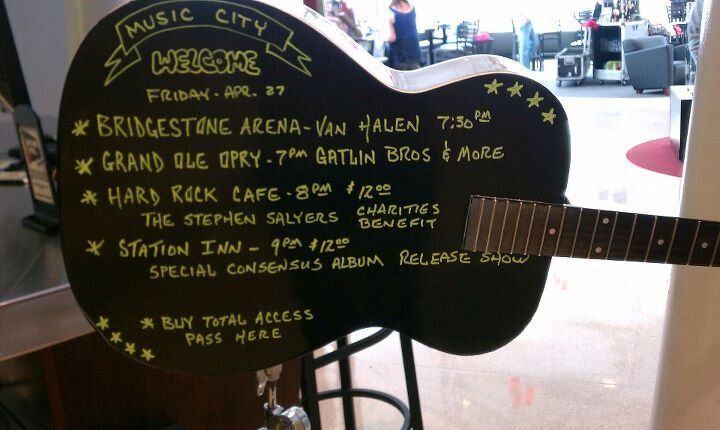 MUSIC CITY
WELCOME
FRIDAY - APR. 27
* BRIDGESTONE ARENA - VAN HALEN 7:30 PM
* GRAND OLE OPRY - 7PM GATLIN BROS & MORE
* HARD ROCK CAFE - 8PM $12.00
THE STEPHEN SALYERS CHARITIES BENEFIT
* STATION INN - 9PM $12.00
SPECIAL CONSENSUS ALBUM RELEASE SHOW
* BUY TOTAL ACCESS
PASS HERE